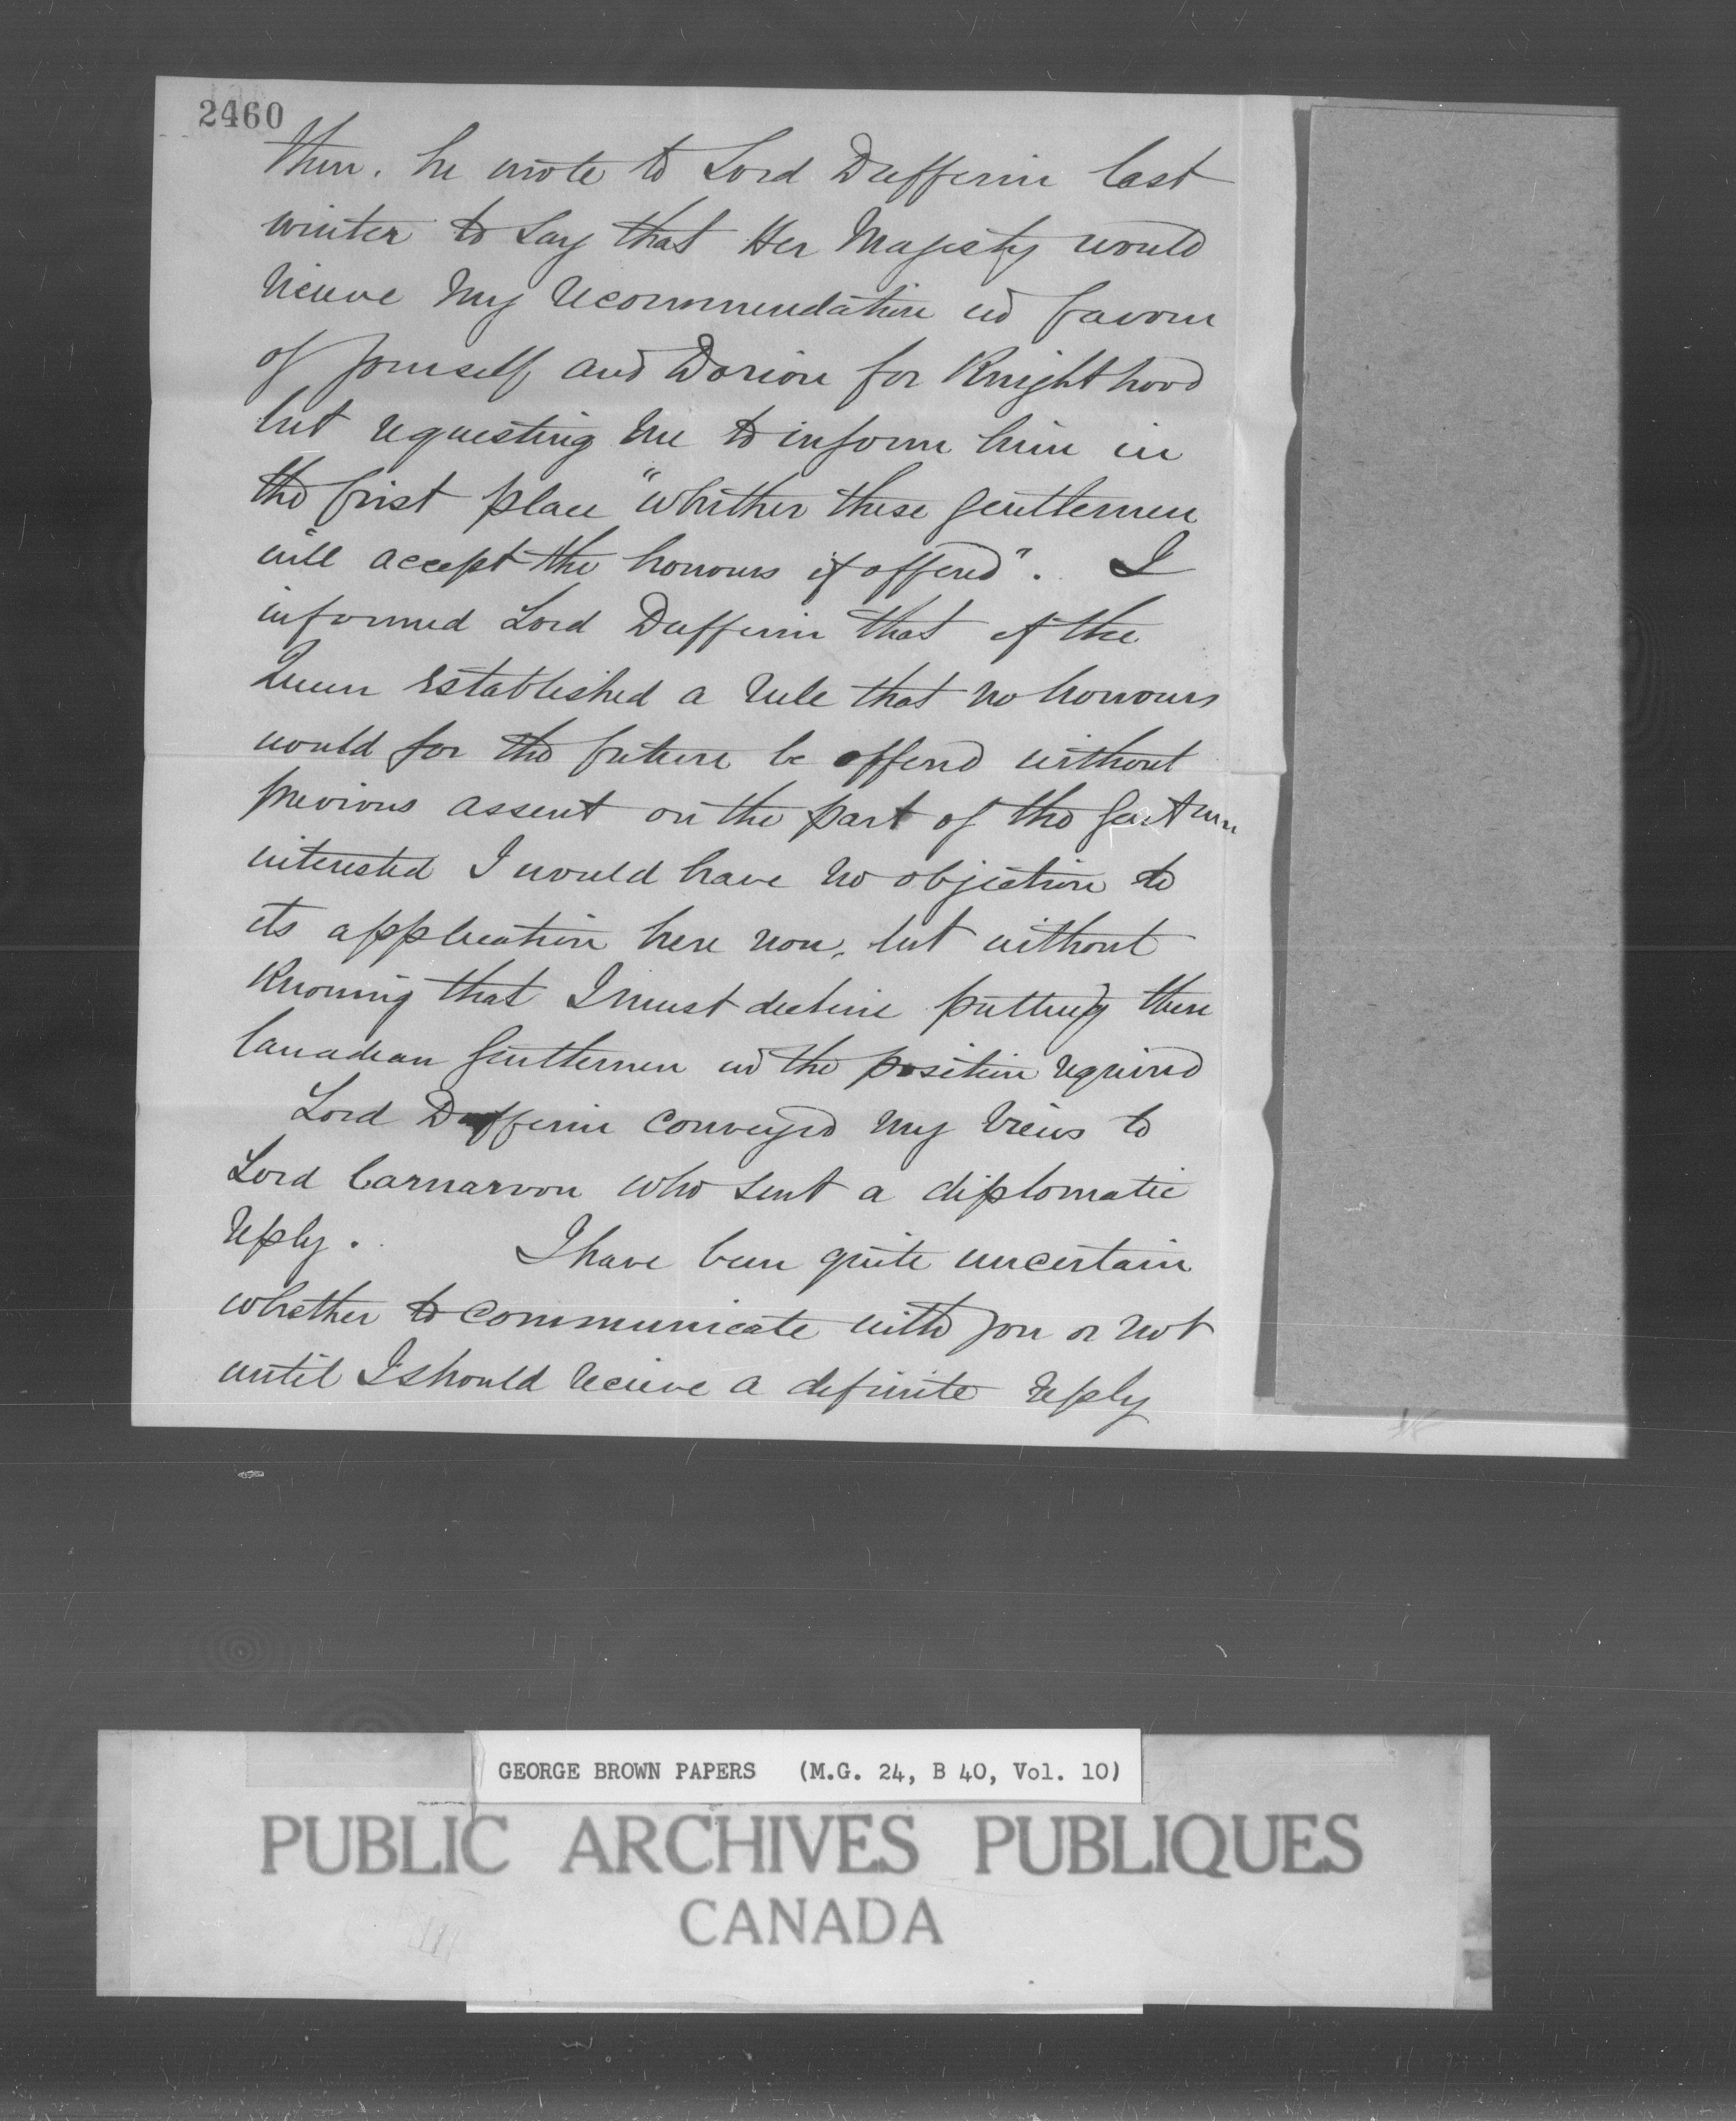 2460
then. he wrote to Lord Dufferin last
winter to say that Her Majesty would
receive my recommendation in favour
of yourself and Dorion for Knighthood
but requesting me to inform him in
the first place "whether these gentlemen
will accept the honours if offered". I
informed Lord Dufferin that if the
Queen established a rule that no honours
would for the future be offered without
previous assent on the part of the
interested I would have no objection to
its application here now, but without
knowing that I must decline putting these
Canadian gentlemen in the position required
Lord Dufferin conveyed my views to
Lord Carnarvon who sent a diplomatic
reply. I have been quite uncertain
whether to communicate with you or not
until I should receive a definite reply
GEORGE BROWN PAPERS (M.G. 24, B 40, Vol. 10)
PUBLIC ARCHIVES PUBLIQUES
CANADA